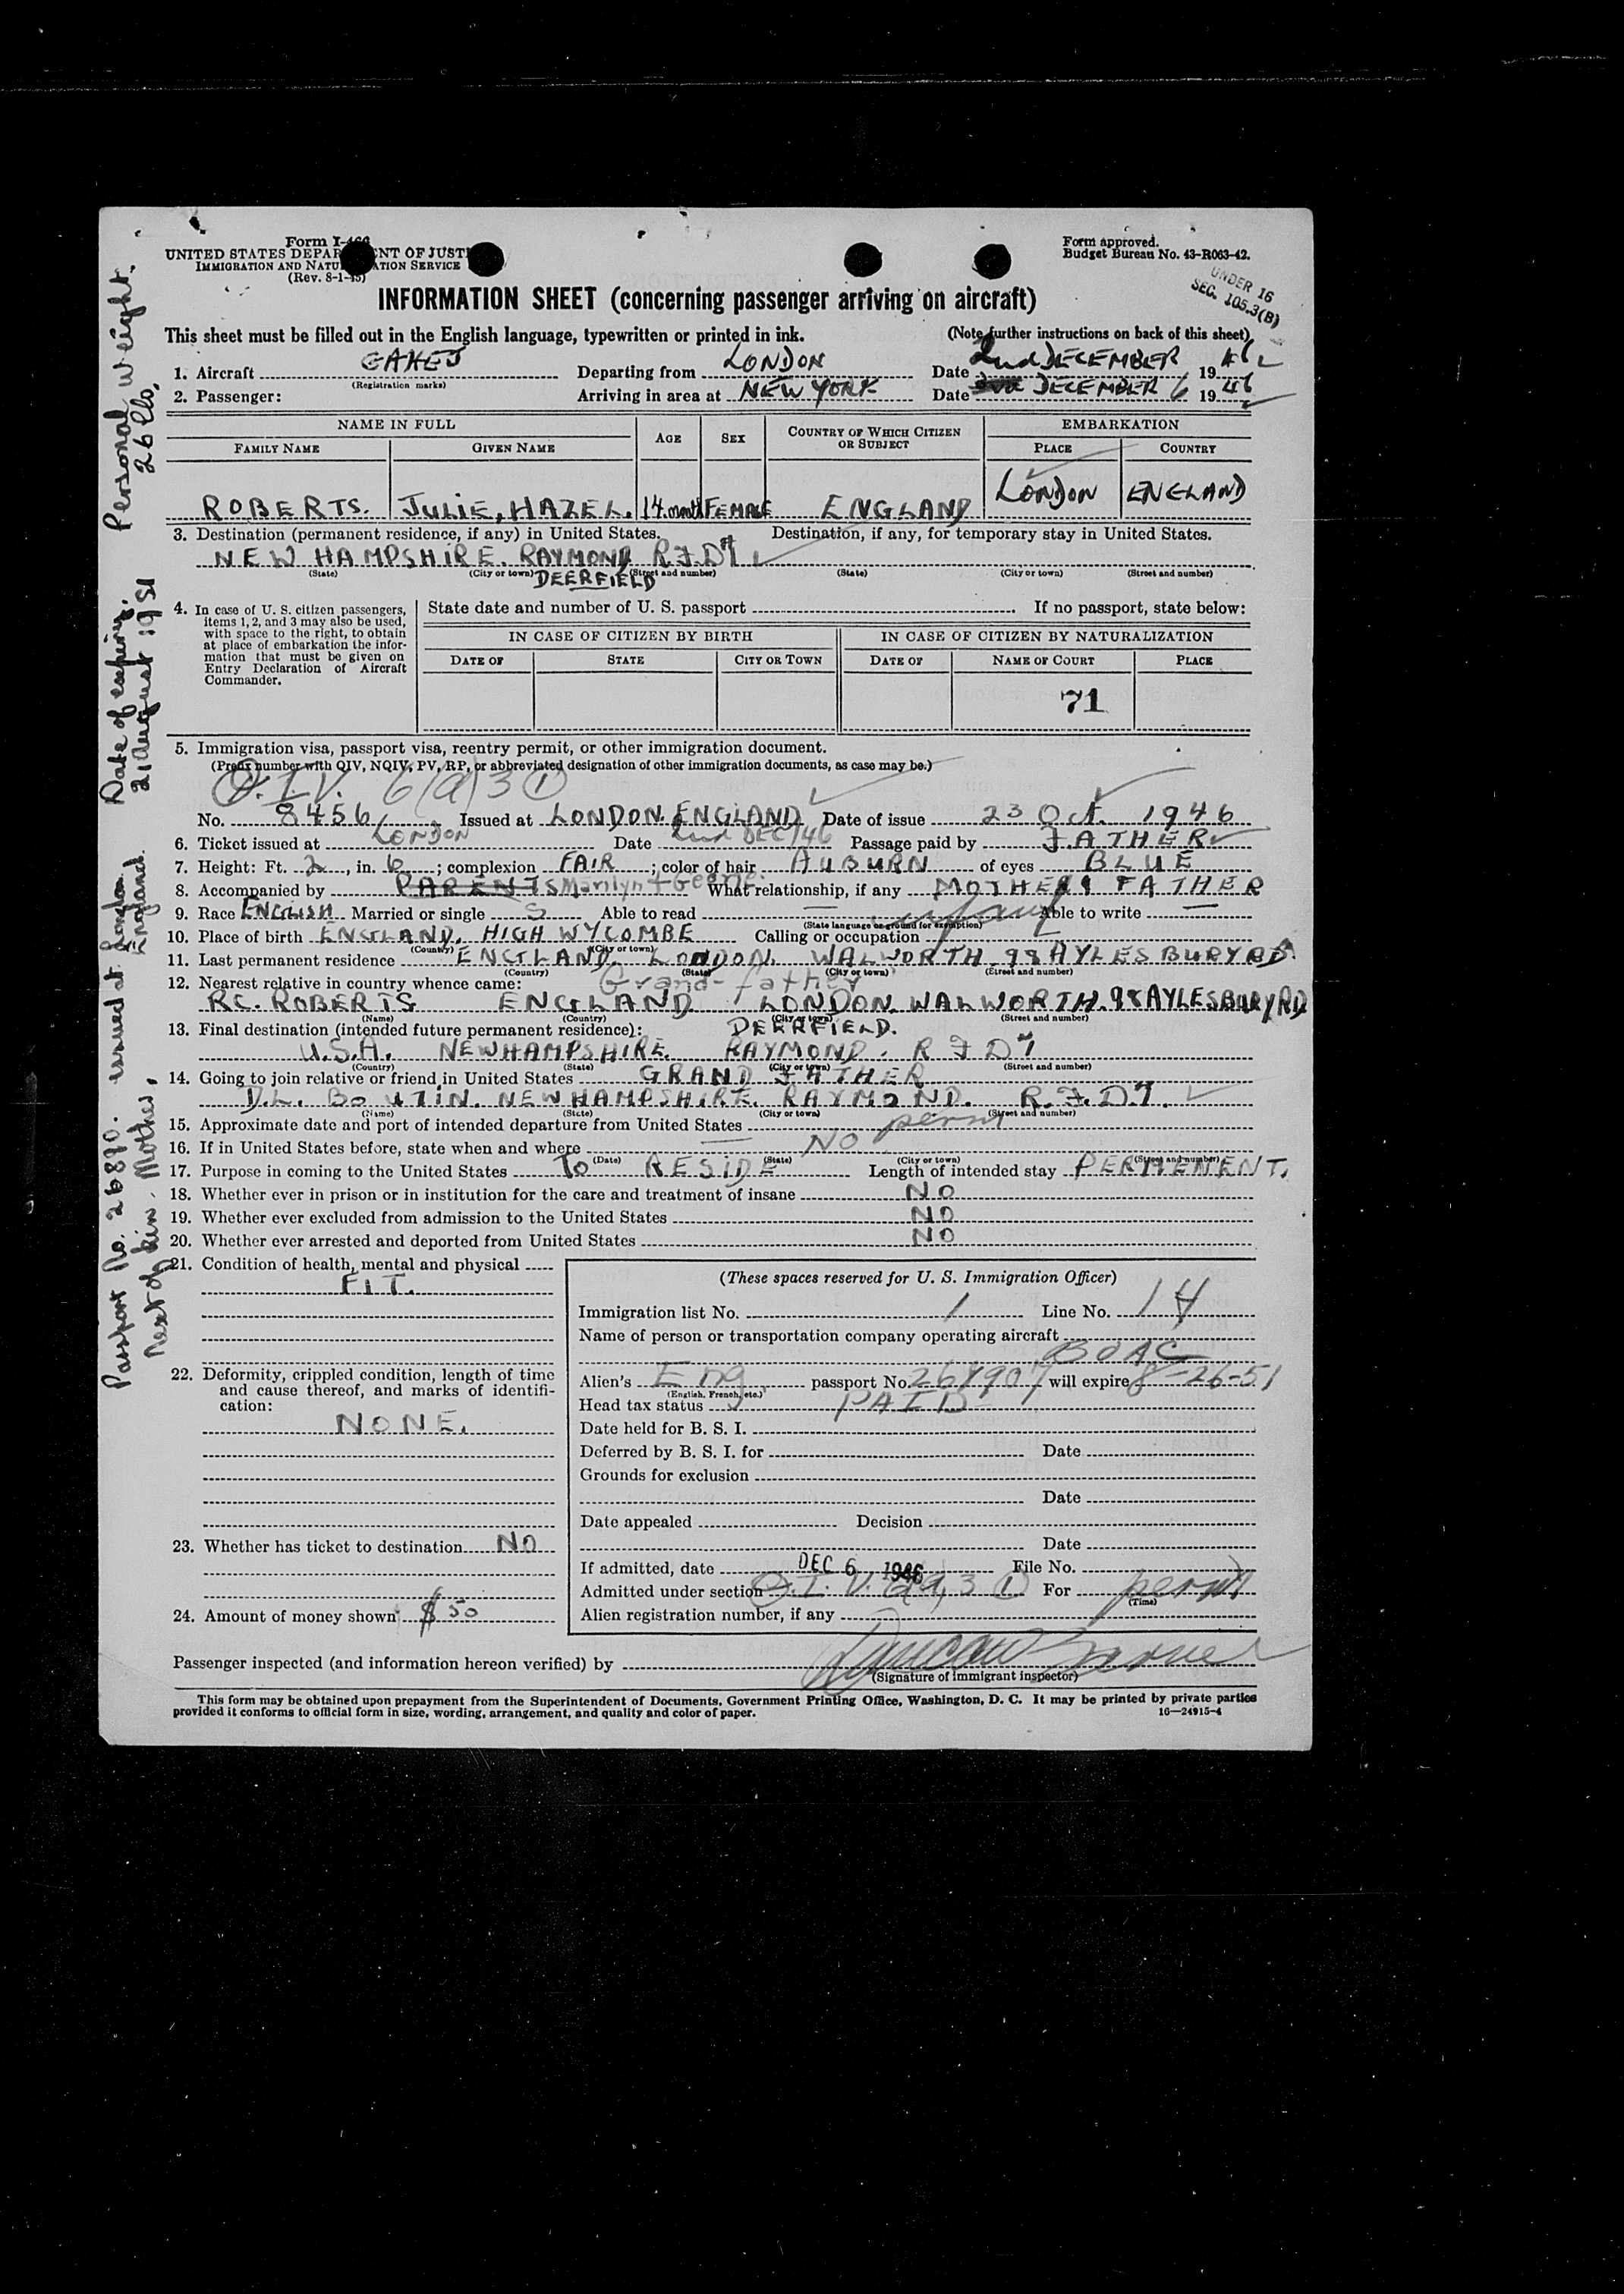 Form I-466
UNITED STATES DEPARTMENT OF JUSTICE
IMMIGRATION AND NATURALIZATION SERVICE
(Rev. 8-1-45)
Form approved.
Budget Bureau No. 43-R063-42.
UNDER 16
SEC. 105.3(B)
INFORMATION SHEET (concerning passenger arriving on aircraft)
This sheet must be filled out in the English language, typewritten or printed in ink. (Note further instructions on back of this sheet)
1. Aircraft Departing from LONDON Date 2nd DECEMBER 1946
(Registration marks)
2. Passenger: Arriving in area at NEW YORK Date DECEMBER 6 1946
NAME IN FULL AGE SEX COUNTRY OF WHICH CITIZEN OR SUBJECT EMBARKATION
FAMILY NAME GIVEN NAME PLACE COUNTRY
ROBERTS. JULIE, HAZEL. 14 month FEMALE ENGLAND LONDON ENGLAND
3. Destination (permanent residence, if any) in United States. Destination, if any, for temporary stay in United States.
NEW HAMPSHIRE. RAYMOND R.F.D 1
(State) (City or town) (Street and number) (State) (City or town) (Street and number)
DEERFIELD
4. In case of U. S. citizen passengers, items 1, 2, and 3 may also be used, with space to the right, to obtain at place of embarkation the information that must be given on Entry Declaration of Aircraft Commander.
State date and number of U. S. passport If no passport, state below:
IN CASE OF CITIZEN BY BIRTH IN CASE OF CITIZEN BY NATURALIZATION
DATE OF STATE CITY OR TOWN DATE OF NAME OF COURT PLACE
71
5. Immigration visa, passport visa, reentry permit, or other immigration document.
(Prefix number with QIV, NQIV, PV, RP, or abbreviated designation of other immigration documents, as case may be.)
Q.I.V. 6(a)3 1
No. 8456 Issued at LONDON. ENGLAND Date of issue 23 Oct. 1946
6. Ticket issued at LONDON Date 2nd DEC/46 Passage paid by FATHER
7. Height: Ft. 2, in. 6; complexion FAIR; color of hair AUBURN of eyes BLUE
8. Accompanied by PARENTS Marilyn + George What relationship, if any MOTHER & FATHER
9. Race ENGLISH Married or single S Able to read — infant Able to write —
(State language or ground for exemption)
10. Place of birth ENGLAND. HIGH WYCOMBE Calling or occupation
(Country) (City or town)
11. Last permanent residence ENGLAND. LONDON. WALWORTH 98 AYLESBURY RD.
(Country) (State) (City or town) (Street and number)
12. Nearest relative in country whence came: Grand-father
R.C. ROBERTS ENGLAND LONDON. WALWORTH. 98 AYLESBURY RD
(Name) (Country) (City or town) (Street and number)
13. Final destination (intended future permanent residence): DEERFIELD.
U.S.A. NEW HAMPSHIRE. RAYMOND. R F D 1
(Country) (State) (City or town) (Street and number)
14. Going to join relative or friend in United States GRAND FATHER
D.L. BOUTIN. NEW HAMPSHIRE. RAYMOND. R.F.D.1.
(Name) (State) (City or town) (Street and number)
15. Approximate date and port of intended departure from United States perm
16. If in United States before, state when and where NO
(Date) (State) (City or town) (Street and number)
17. Purpose in coming to the United States TO RESIDE Length of intended stay PERMENENT.
18. Whether ever in prison or in institution for the care and treatment of insane NO
19. Whether ever excluded from admission to the United States NO
20. Whether ever arrested and deported from United States NO
21. Condition of health, mental and physical
FIT.
22. Deformity, crippled condition, length of time and cause thereof, and marks of identification:
NONE.
23. Whether has ticket to destination NO
24. Amount of money shown $50
(These spaces reserved for U. S. Immigration Officer)
Immigration list No. 1 Line No. 14
Name of person or transportation company operating aircraft
BOAC
Alien's Eng passport No. will expire 8-26-51
(English, French, etc.)
Head tax status PAID
Date held for B. S. I.
Deferred by B. S. I. for Date
Grounds for exclusion
Date
Date appealed Decision
Date
If admitted, date DEC 6 1946 File No.
Admitted under section Q.I.V. 6a 3 1 For perm
(Time)
Alien registration number, if any
Passenger inspected (and information hereon verified) by
(Signature of immigrant inspector)
This form may be obtained upon prepayment from the Superintendent of Documents, Government Printing Office, Washington, D. C. It may be printed by private parties
provided it conforms to official form in size, wording, arrangement, and quality and color of paper. 16—24915-4
Passport No. 26890. issued at London. Date of expiring. Personal weight.
England. 21 August 1951 26 lbs.
Next of kin. Mother.